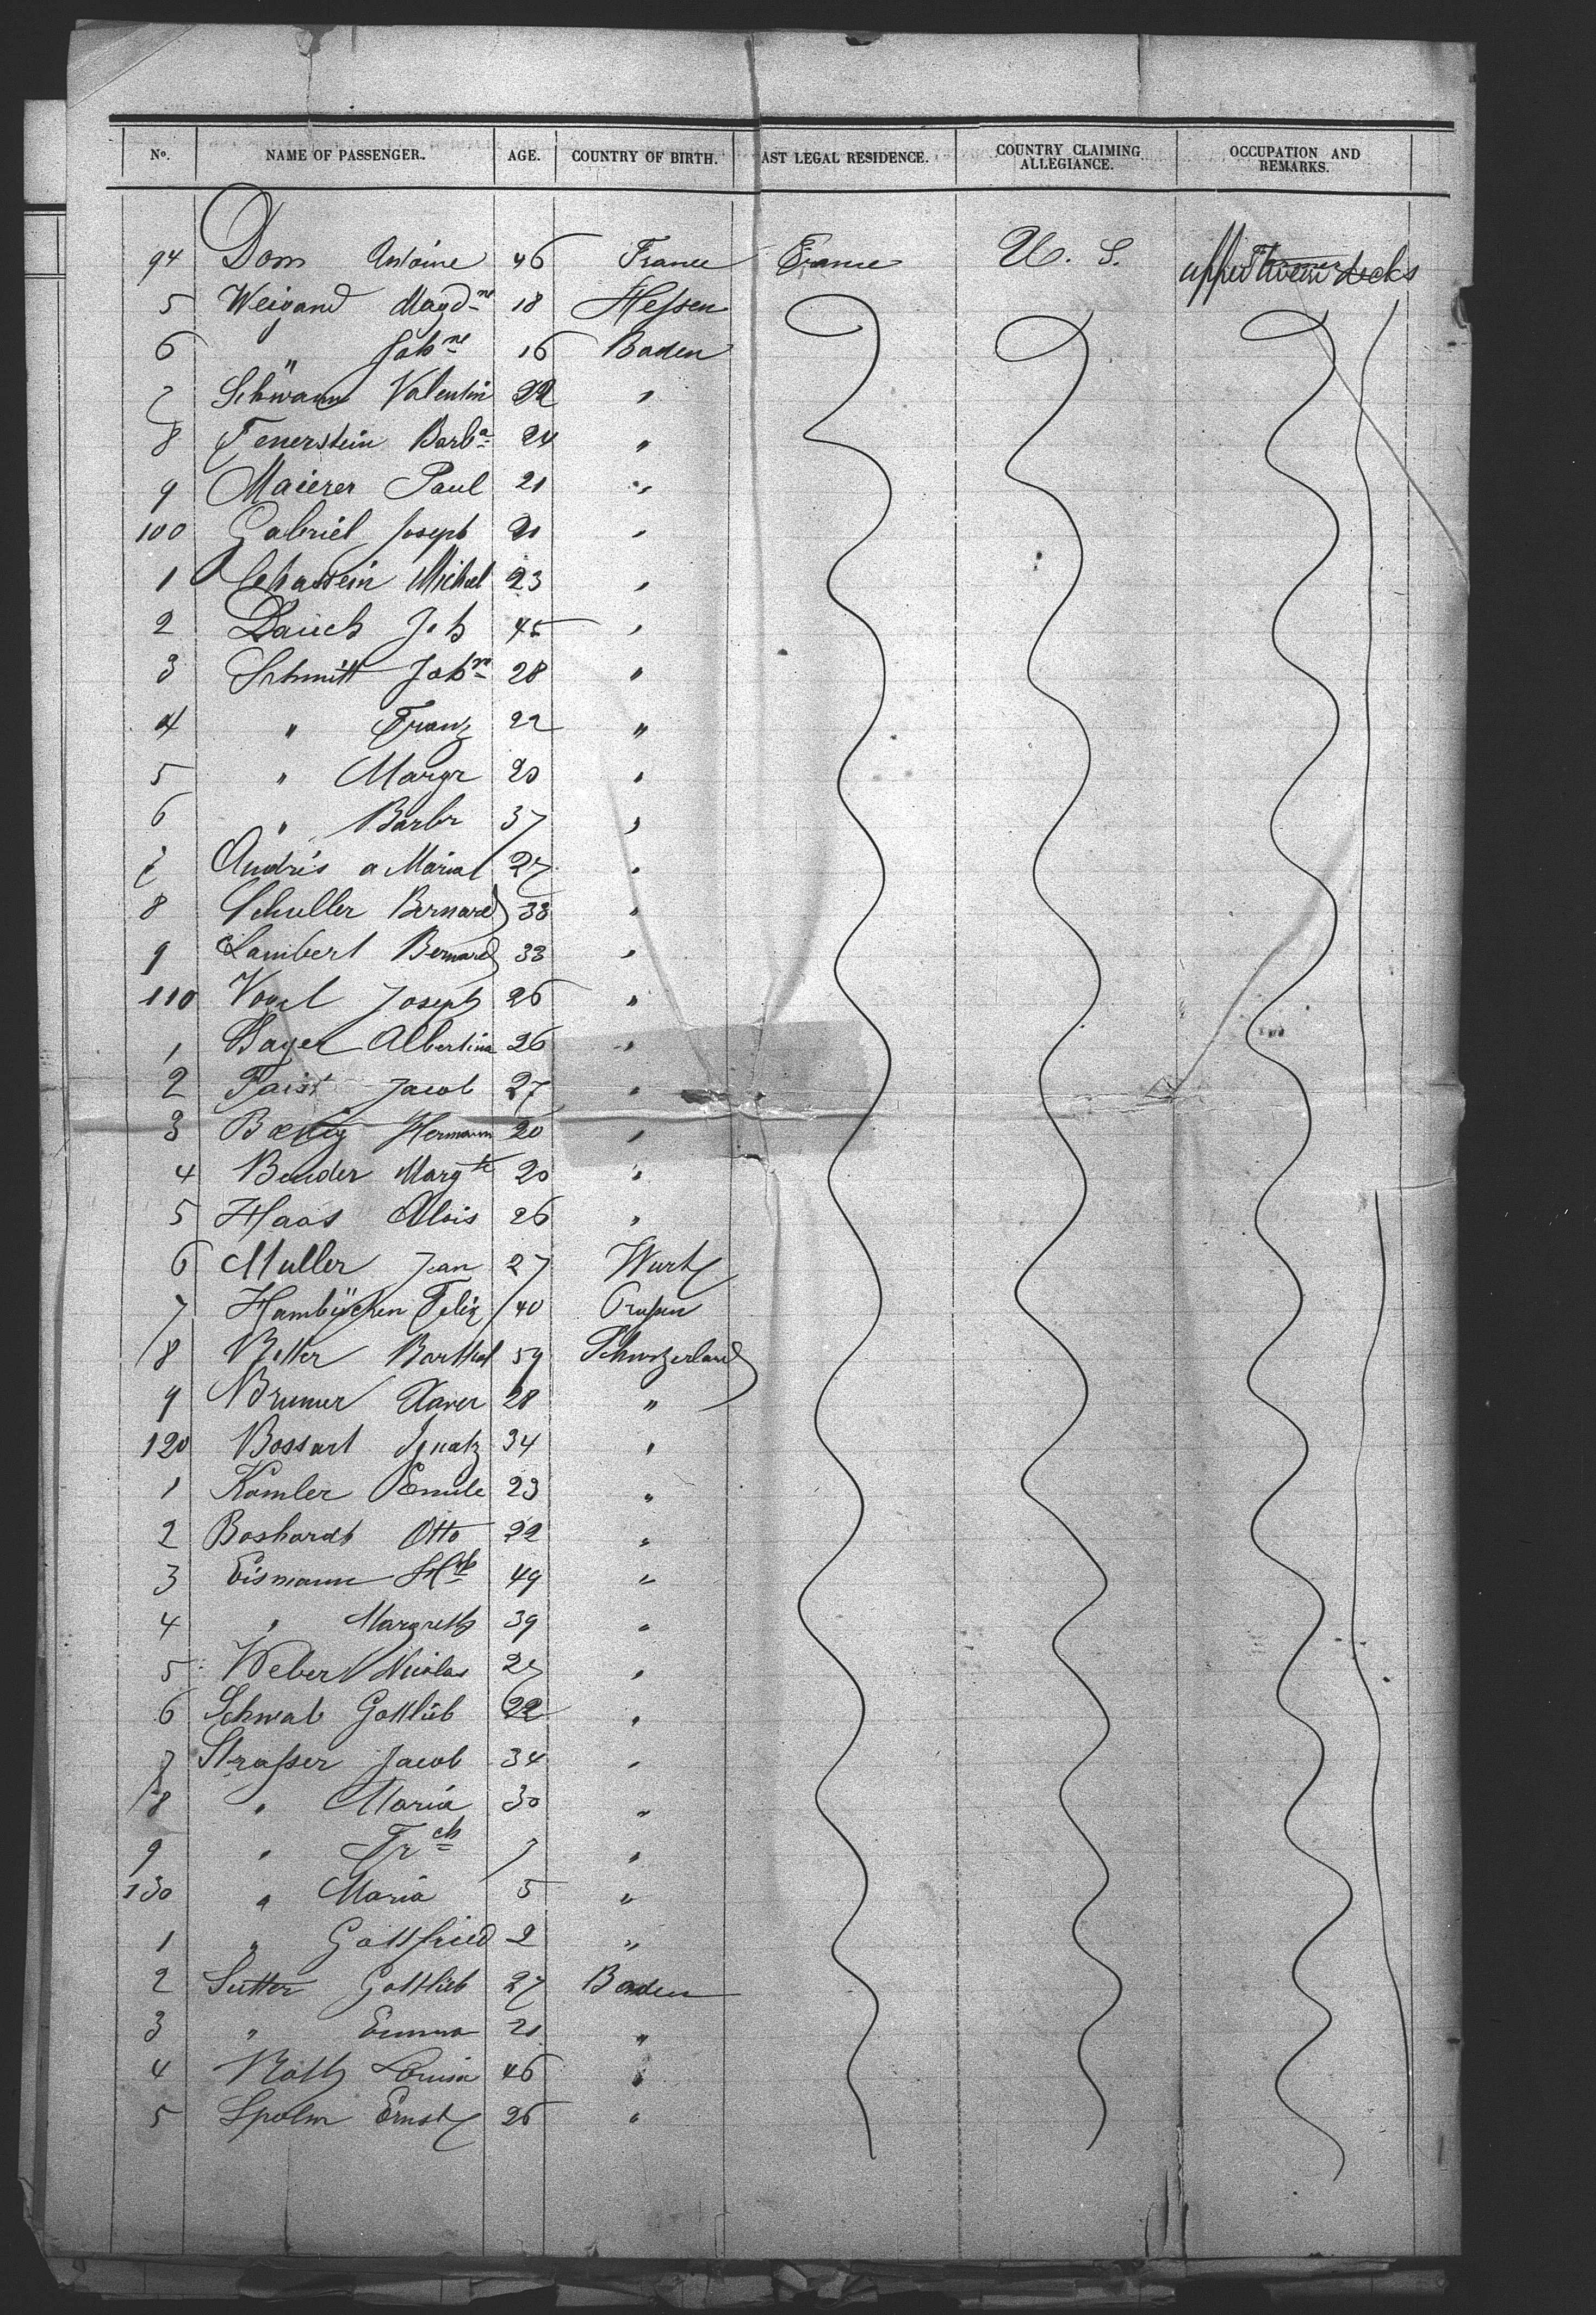 No. NAME OF PASSENGER. AGE. COUNTRY OF BIRTH. AST LEGAL RESIDENCE. COUNTRY CLAIMING ALLEGIANCE. OCCUPATION AND REMARKS.
94 Dom Antoine 46 France France U. S. decks
5 Weigand Magdne 18 Hessen
6 " Johne 16 Baden
7 Schwann Valentin 22 "
8 Feuerstein Barba 24 "
9 Maierer Paul 21 "
100 Gabriel Joseph 21 "
1 Michael 23 "
2 Dauch Joh 45 "
3 Schmitt Johne 28 "
4 " Franz 22 "
5 " Margr 20 "
6 " Barbr 37 "
7 Andrés a Maria 27 "
8 Schuller Bernard 33 "
9 Lambert Bernard 33 "
110 Vogel Joseph 26 "
1 Bayer Albertina 26 "
2 Faist Jacob 27 "
3 Hermann 20 "
4 Bender Margte 20 "
5 Haas Alois 26 "
6 Muller Jean 27 Wurt
7 Hambüchen Felix 40 Prussen
8 Barthol 59 Schwitzerland
9 Brunner Xaver 28 "
120 Bossart Ignatz 34 "
1 Komler Emile 23 "
2 Boshardt Otto 22 "
3 Eismann 49 "
4 " Margreth 39 "
5 Weber Nicolas 27 "
6 Schwab Gottlieb 22 "
7 Strasser Jacob 34 "
8 " Maria 30 "
9 " Frch 7 "
130 " Maria 5 "
1 " Gottfried 2 "
2 Sutter Gottlieb 27 Baden
3 " Emma 21 "
4 Roth Louisa 46 "
5 Spolm Ernst 26 "